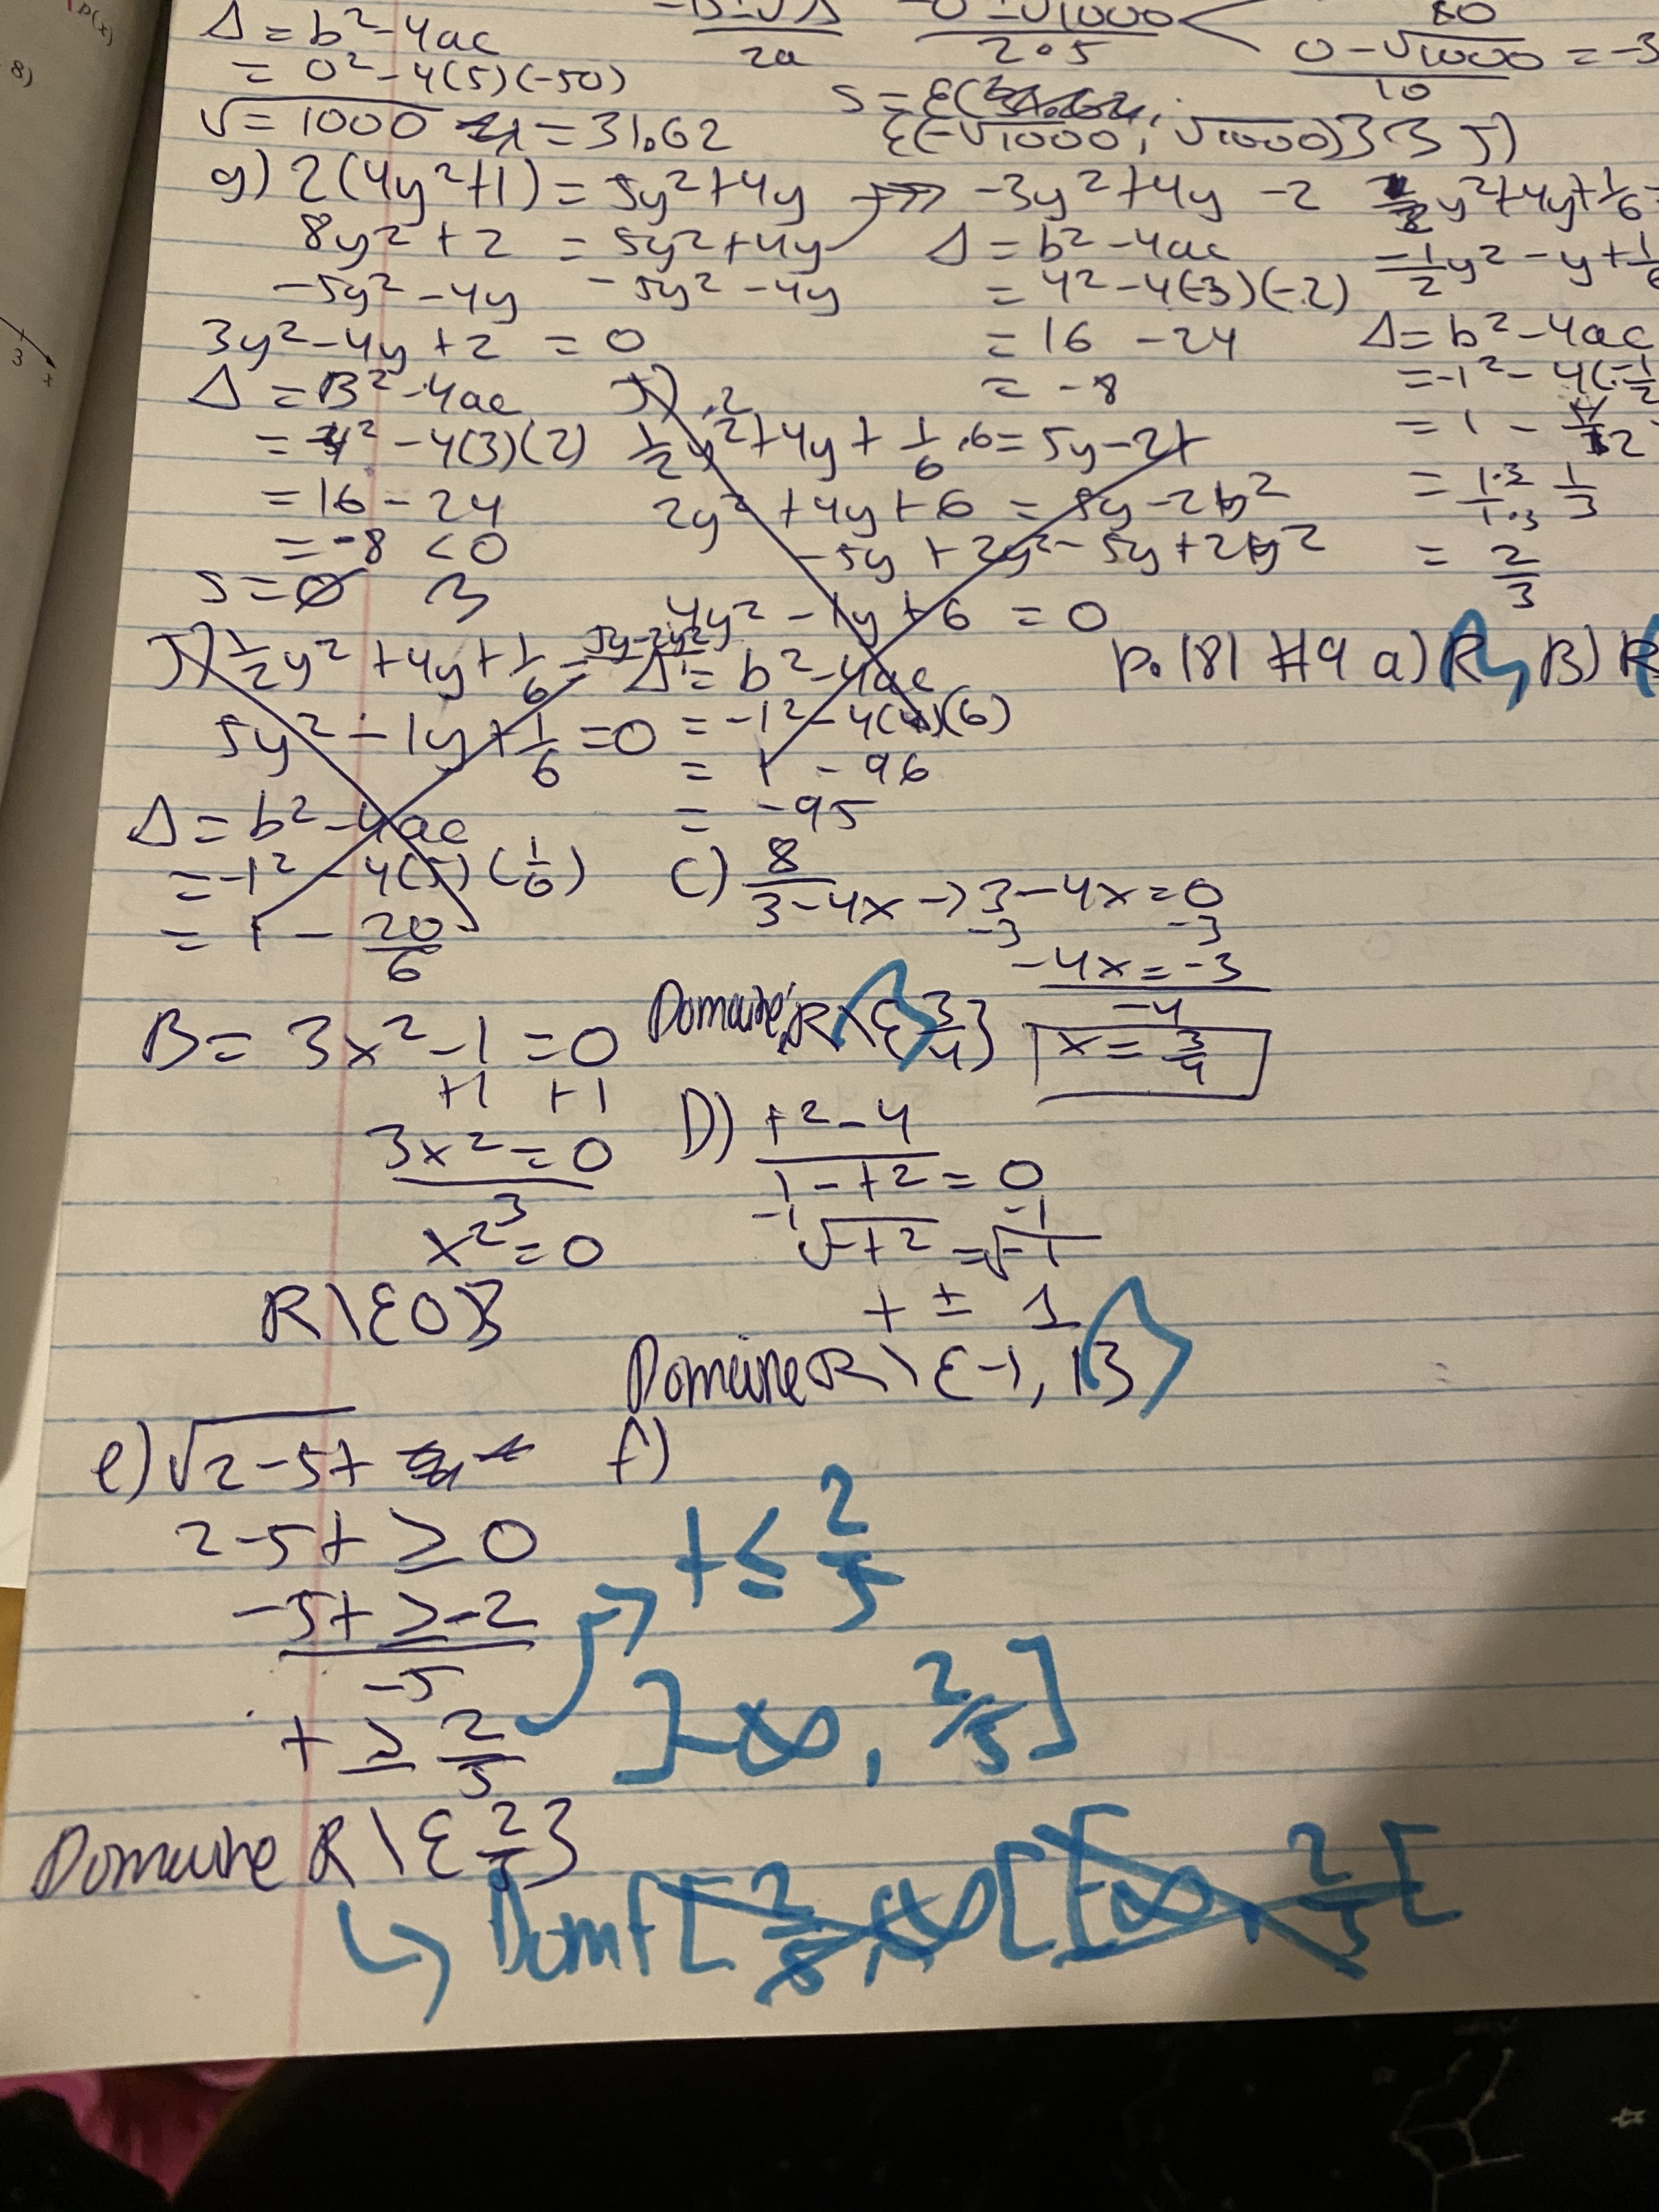 p(x)
8)
3
x
Δ = b² - 4ac
= 0² - 4(5)(-50)
√= 1000 = 31.62
2a
-0 ± √1000
2•5
0 - √1000 = -3
10
S = {(
{(-√1000, √1000)} 3 J)
g) 2(4y²+1) = 5y²+4y
8y² + 2 = 5y²+4y
-5y² -4y -5y² -4y
3y² -4y +2 = 0
Δ = B² -4ac
= 4² -4(3)(2)
= 16 - 24
= -8 < 0
S = ∅ 3
-3y² +4y -2
Δ = b² -4ac
= 4² -4(-3)(-2)
= 16 - 24
= -8
y²+4y+1/6
= 1/2y² - y + 1/6
Δ = b² - 4ac
= -1² - 4(-1/2
= 1 - 4/12
= 1·3/1·3 1/3
= 2/3
J) ·2
1/2y² +4y + 1/6 ·6 = 5y-2
2y² +4y +6 = 5y -2y²
-5y +2y² -5y +2y²
4y² -1y +6 = 0
Δ = b² -4ac
= -1² -4(4)(6)
= 1 - 96
= -95
J) 1/2y² +4y + 1/6 = 5y-2y²
5y² -1y +1/6 = 0
Δ = b² -4ac
= -1² -4(5)(1/6)
= 1 - 20/6
p. 181 #9 a) R B) R
B = 3x² -1 = 0
+1 +1
3x² = 0
3
x² = 0
R\{0}
C) 8/3-4x → 3-4x = 0
-3 -3
-4x = -3
-4
x = 3/4
Domaine: R\{3/4}
D) t²-4
1-t² = 0
-1 -1
√-t² = √-1
t ± 1
Domaine R\{-1, 1}
e) √2-5t
2-5t ≥ 0
-5t ≥ -2
-5
t ≥ 2/5
Domaine R\{2/5}
f)
t ≤ 2/5
]-∞, 2/5]
Domf [2/5, ∞[ [-∞, 2/5[